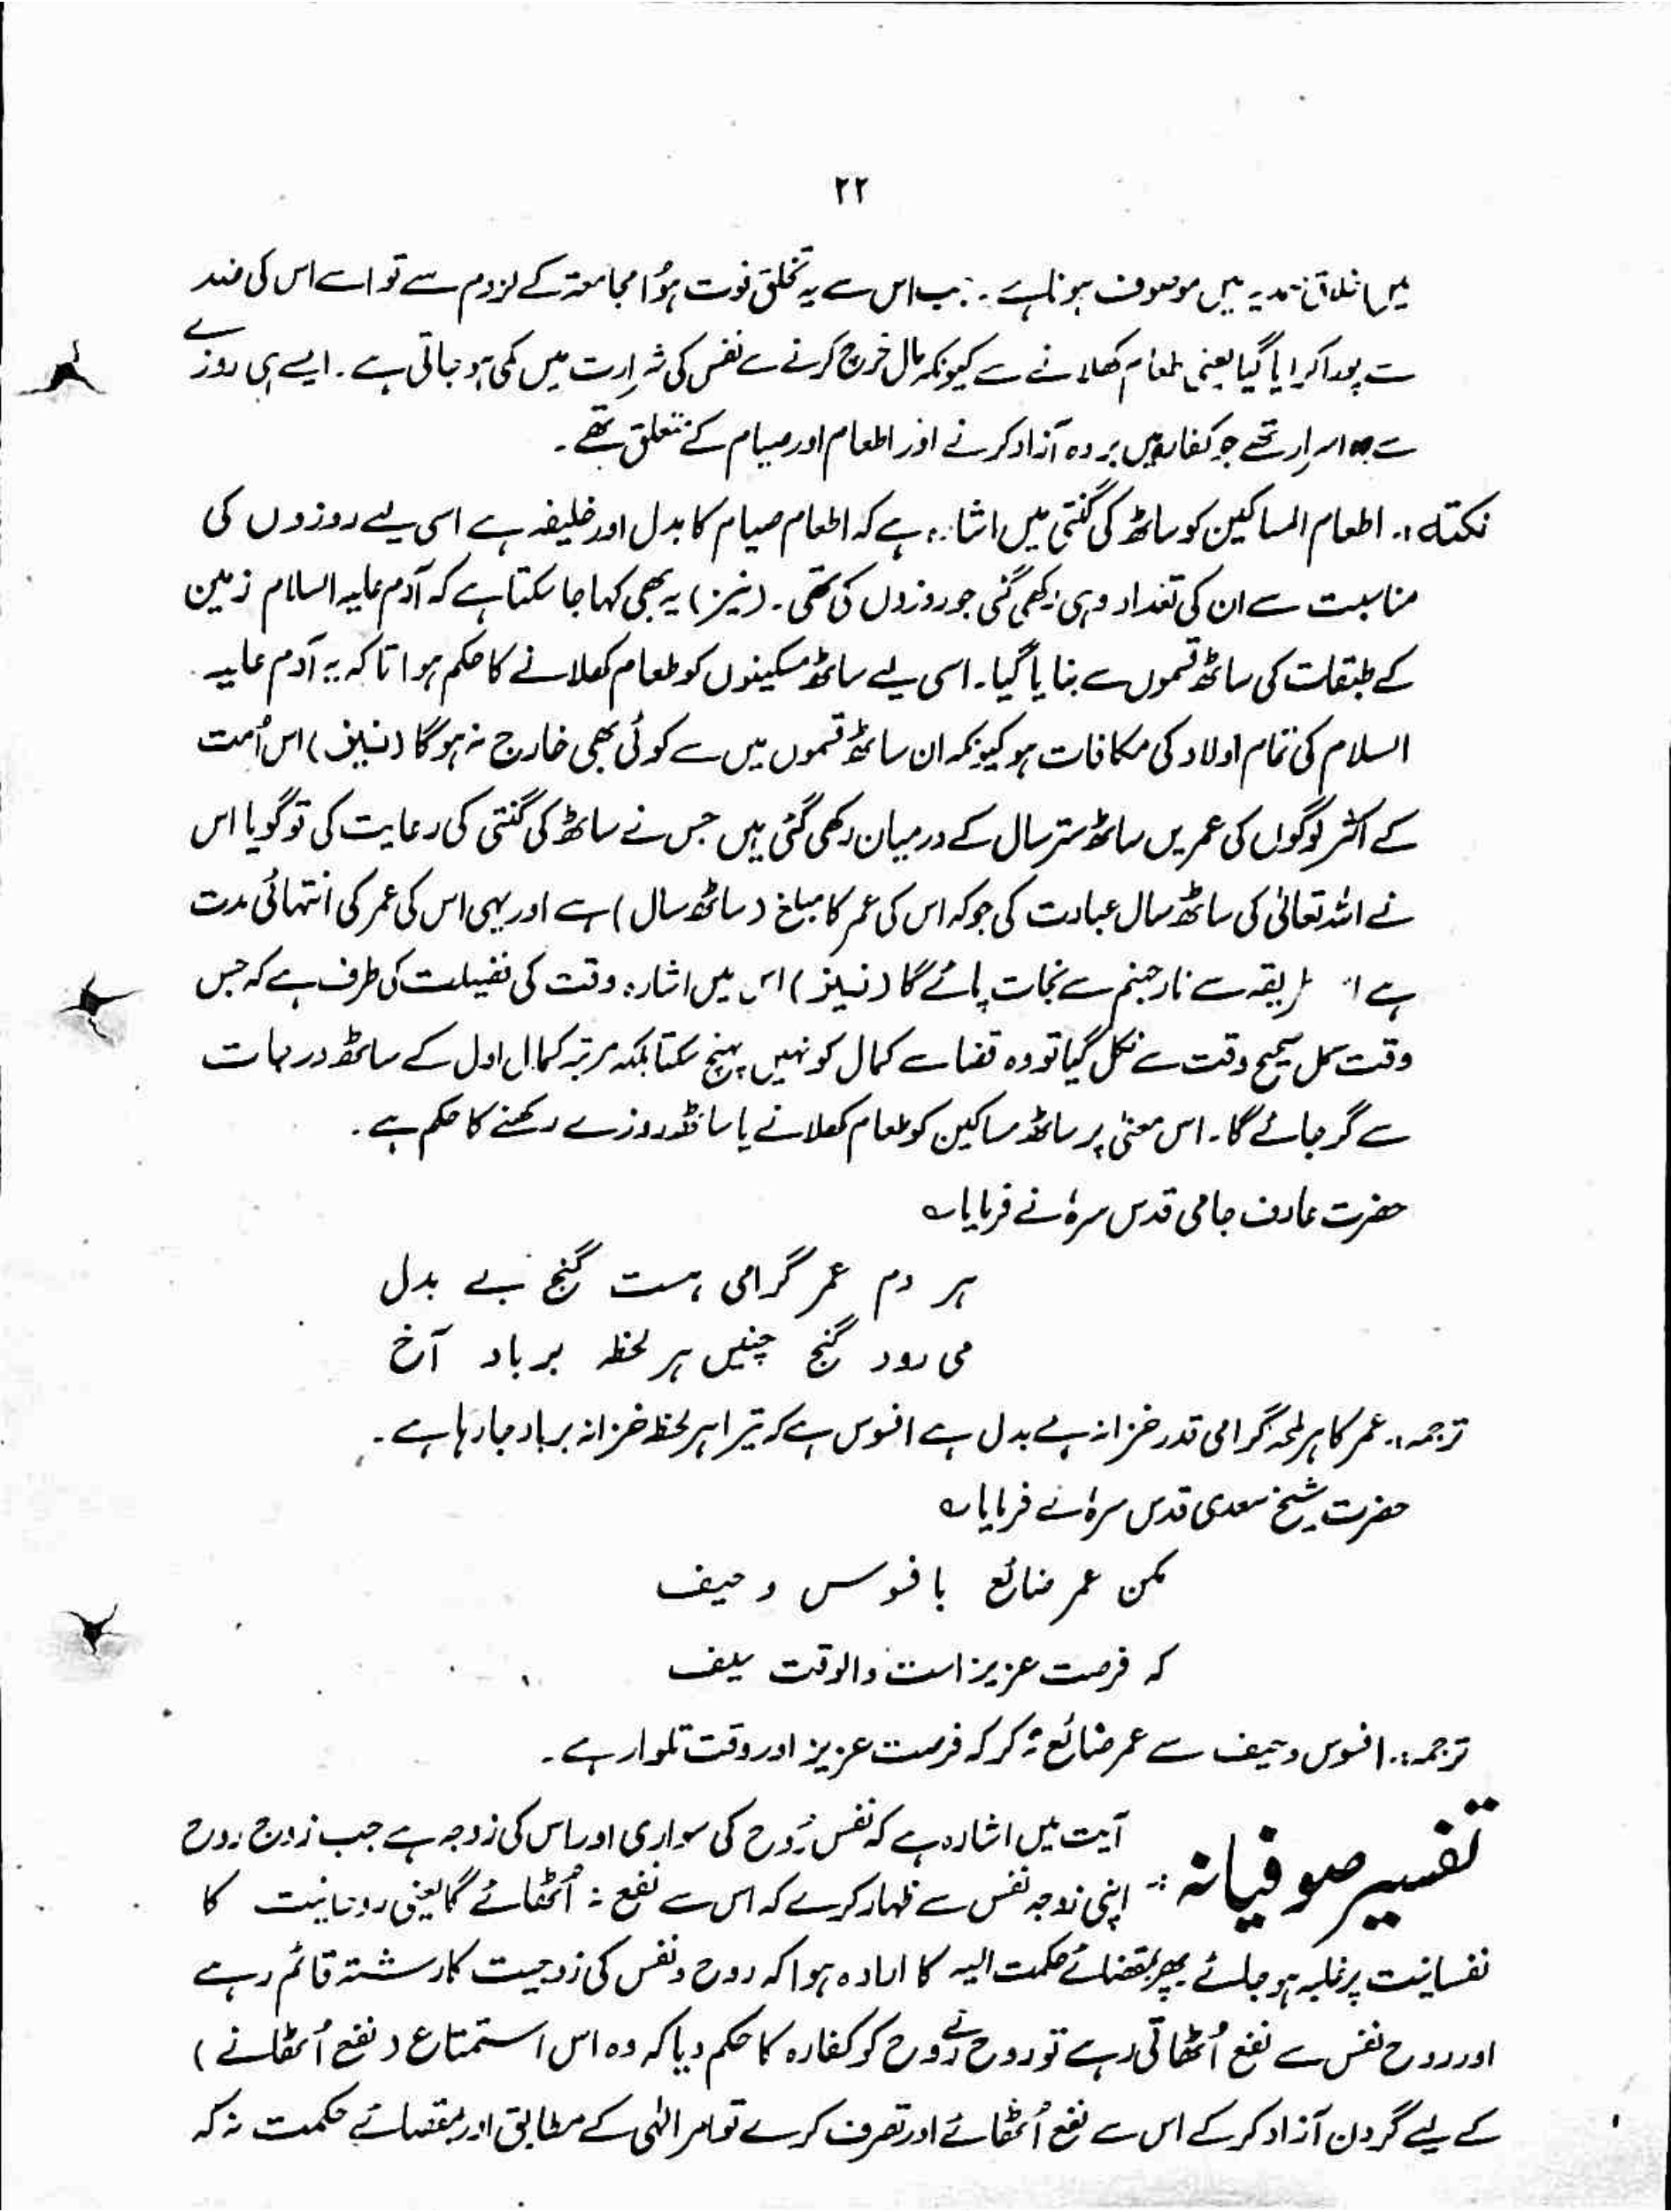 ۲۲
میں اخلاق صمدیہ میں موصوف ہونا ہے۔ جب اس سے یہ تخلق فوت ہؤا مجامعۃ کے لزوم سے تو اسے اس کی ضد
سے پورا کرایا گیا یعنی طعام کھلانے سے کیونکہ مال خرچ کرنے سے نفس کی شرارت میں کمی ہو جاتی ہے۔ ایسے ہی روزے
سے اسرار تھے جو کفارہ میں بردہ آزاد کرنے اور اطعام اور صیام کے متعلق تھے۔
نکتہ :۔ اطعام المساکین کو ساٹھ کی گنتی میں اشارہ ہے کہ اطعام صیام کا بدل اور خلیفہ ہے اسی لیے روزوں کی
مناسبت سے ان کی تعداد وہی رکھی گئی جو روزوں کی تھی۔ (نیز) یہ بھی کہا جا سکتا ہے کہ آدم علیہ السلام زمین
کے طبقات کی ساٹھ قسموں سے بنایا گیا۔ اسی لیے ساٹھ مسکینوں کو طعام کھلانے کا حکم ہوا تاکہ یہ آدم علیہ
السلام کی تمام اولاد کی مکافات ہو کیونکہ ان ساٹھ قسموں میں سے کوئی بھی خارج نہ ہوگا (نیز) اس اُمت
کے اکثر لوگوں کی عمریں ساٹھ ستر سال کے درمیان رکھی گئی ہیں جس نے ساٹھ کی گنتی کی رعایت کی تو گویا اس
نے اللہ تعالیٰ کی ساٹھ سال عبادت کی جو کہ اس کی عمر کا مبلغ (ساٹھ سال) ہے اور یہی اس کی عمر کی انتہائی مدت
ہے اس طریقہ سے نار جہنم سے نجات پائے گا (نیز) اس میں اشارہ وقت کی فضیلت کی طرف ہے کہ جس
وقت کل صحیح وقت سے نکل گیا تو وہ قضا سے کمال کو نہیں پہنچ سکتا بلکہ مرتبہ کمال اول کے ساٹھ درجات
سے گر جائے گا۔ اس معنیٰ پر ساٹھ مساکین کو طعام کھلانے یا ساٹھ روزے رکھنے کا حکم ہے۔
حضرت عارف جامی قدس سرہٗ نے فرمایا ؎
ہر دم عمر گرامی ہست گنج بے بدل
می رود گنج چنیں ہر لحظہ برباد آخ
ترجمہ :۔ عمر کا ہر لمحہ گرامی قدر خزانہ بے بدل ہے افسوس ہے کہ تیرا ہر لحظہ خزانہ برباد جا رہا ہے۔
حضرت شیخ سعدی قدس سرہٗ نے فرمایا ؎
مکن عمر ضائع بافسوس و حیف
کہ فرصت عزیز است والوقت سیف
ترجمہ :۔ افسوس و حیف سے عمر ضائع نہ کر کہ فرصت عزیز اور وقت تلوار ہے۔
تفسیر صوفیانہ :۔ آیت میں اشارہ ہے کہ نفس رُوح کی سواری اور اس کی زوجہ ہے جب زوج روح
اپنی زوجہ نفس سے ظہار کرے کہ اس سے نفع نہ اُٹھائے گا یعنی روحانیت کا
نفسانیت پر غلبہ ہو جائے پھر بمقتضائے حکمت الٰہیہ کا ارادہ ہوا کہ روح و نفس کی زوجیت کا رشتہ قائم رہے
اور روح نفس سے نفع اُٹھاتی رہے تو روح نے رُوح کو کفارہ کا حکم دیا کہ وہ اس استمتاع (نفع اُٹھانے)
کے لیے گردن آزاد کر کے اس سے نفع اُٹھائے اور تصرف کرے تو امر الٰہی کے مطابق اور بمقتضائے حکمت نہ کہ